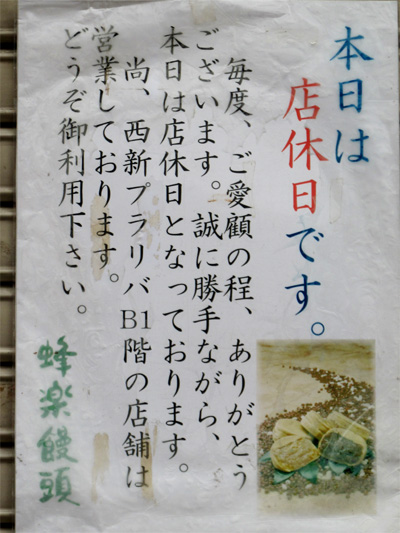 本日は
店休日です。
毎度、ご愛顧の程、ありがとう
ございます。誠に勝手ながら、
本日は店休日となっております。
尚、西新プラリバB1階の店舗は
営業しております。
どうぞ御利用下さい。
蜂楽饅頭